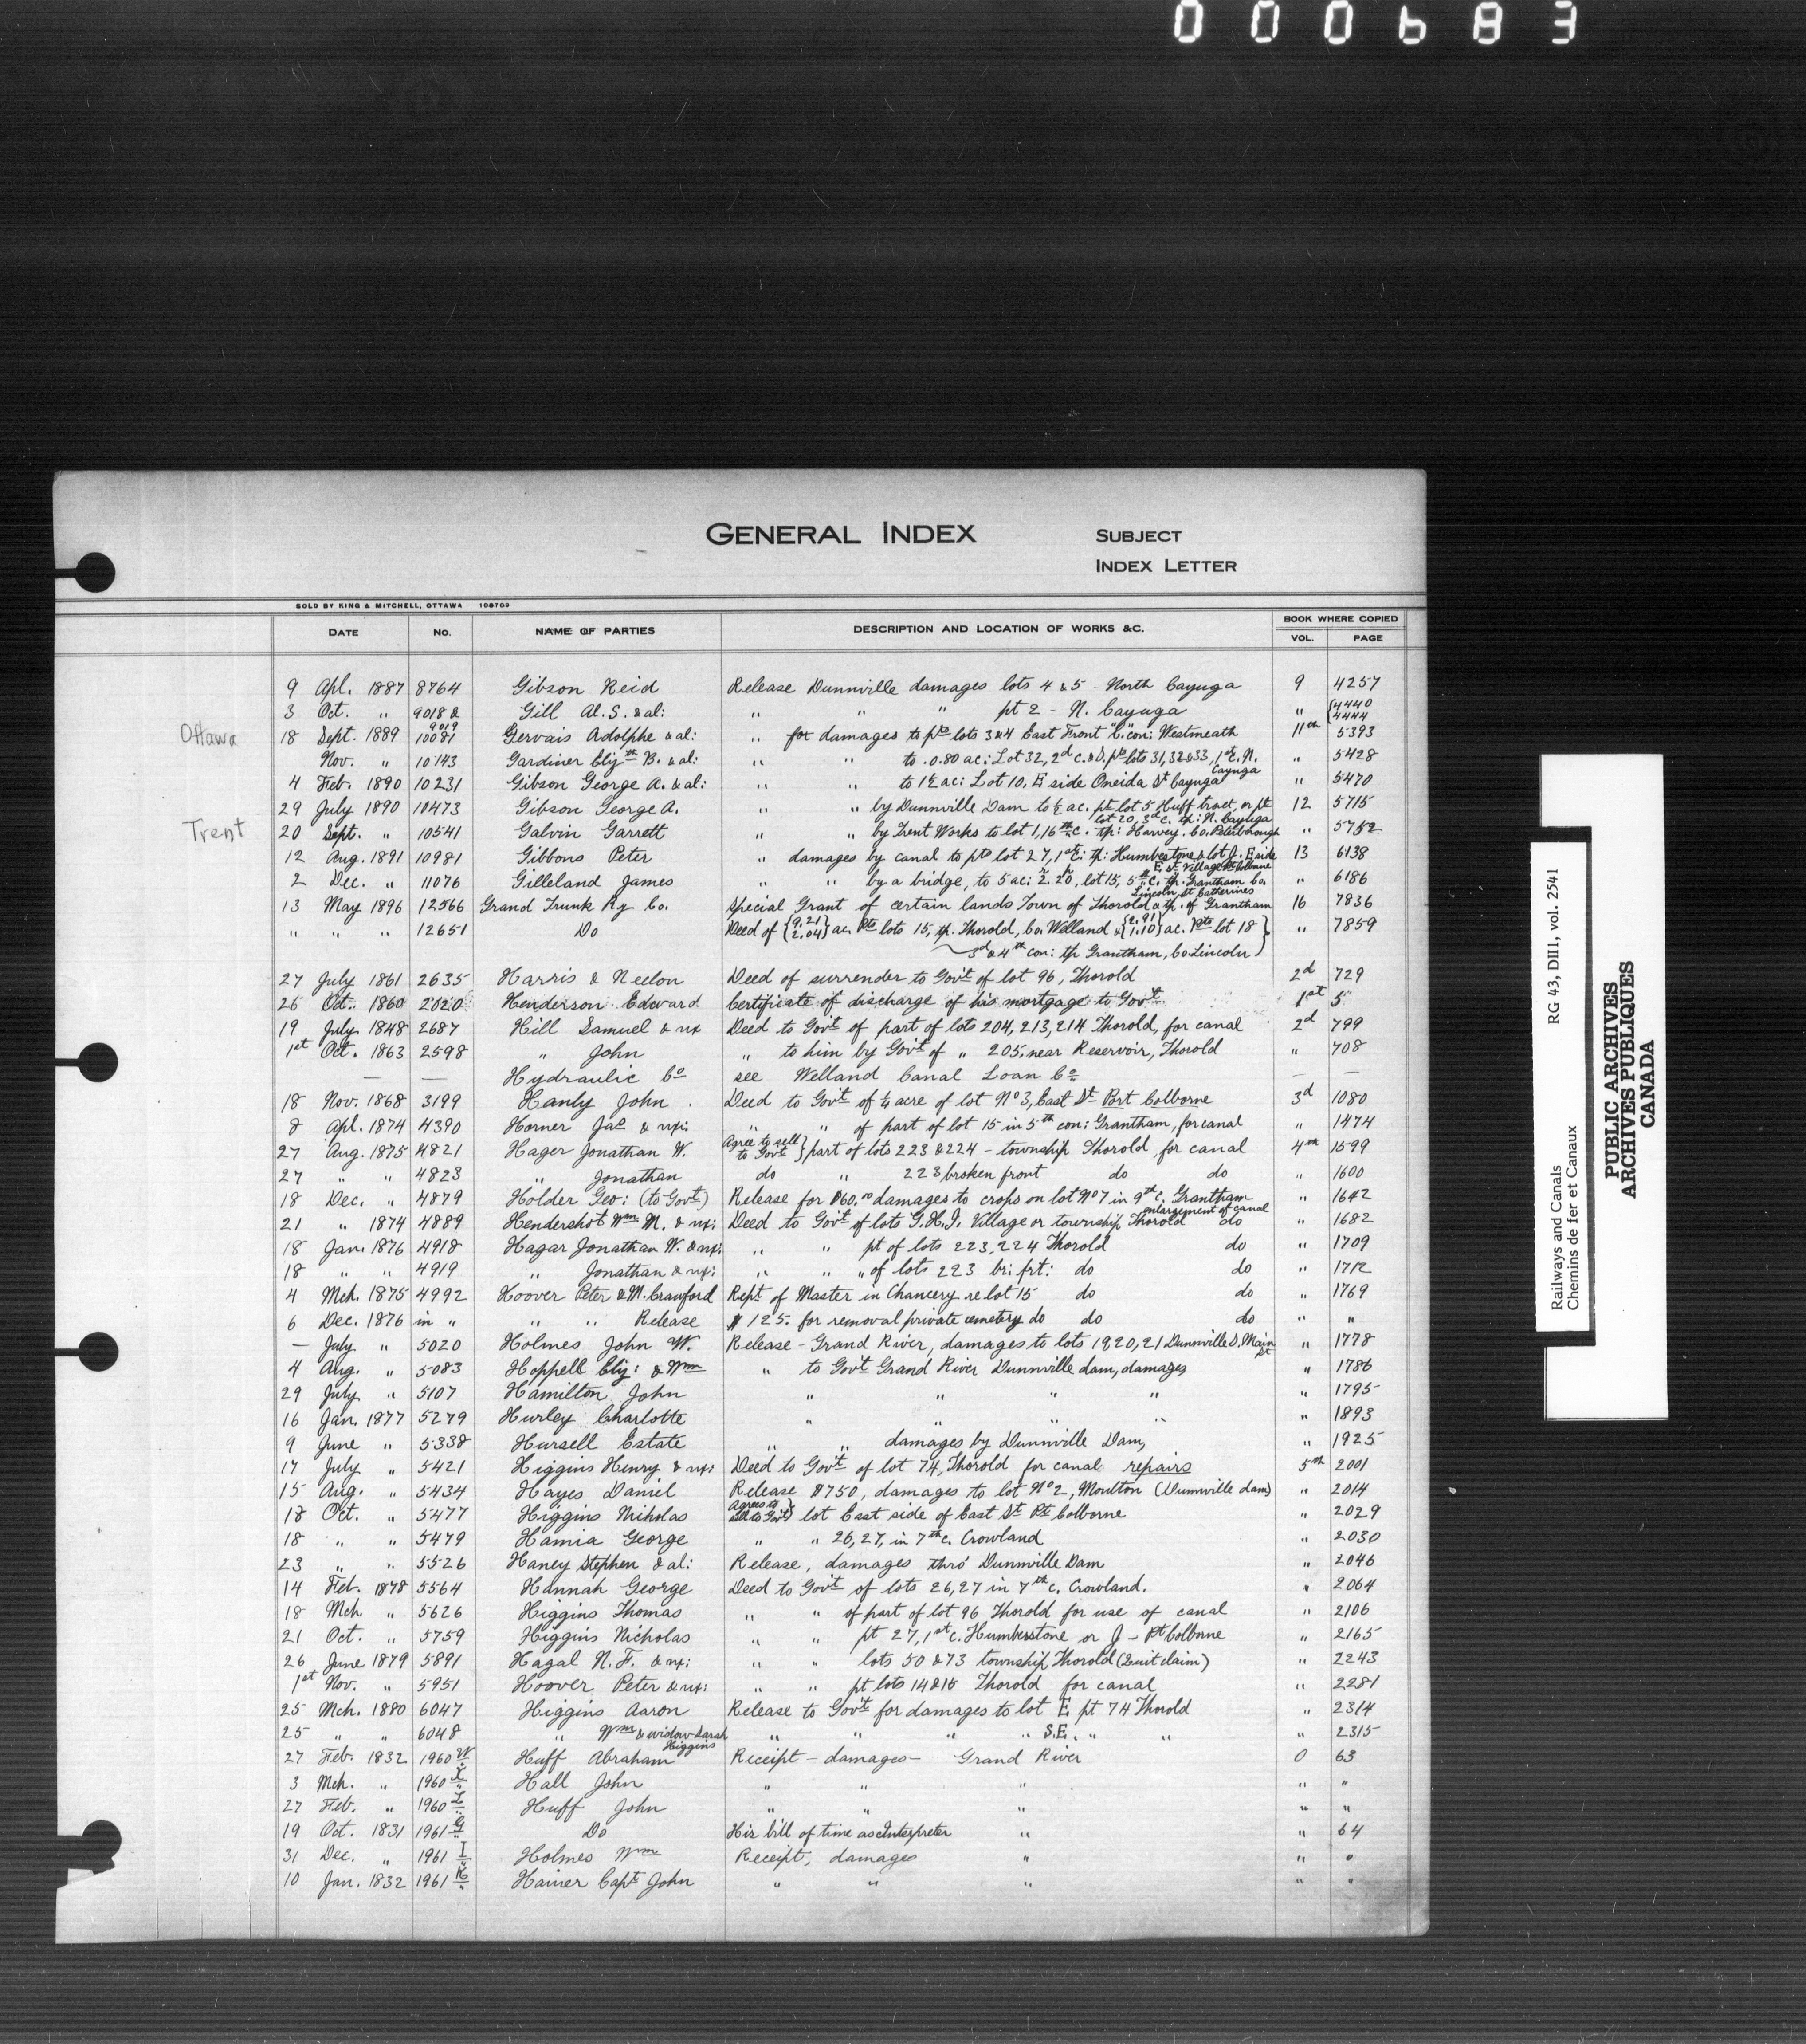 000683
GENERAL INDEX
SUBJECT
INDEX LETTER
SOLD BY KING & MITCHELL, OTTAWA 108709
DATE No. NAME OF PARTIES DESCRIPTION AND LOCATION OF WORKS &C. BOOK WHERE COPIED
VOL. PAGE
9 Apl. 1887 8764 Gibson Reid Release Dunnville damages lots 4 & 5 - North Cayuga 9 4257
3 Oct. " 9018 & 9019 Gill Al. S. & al: " " " pt 2 - N. Cayuga " {4440 4444
Ottawa 18 Sept. 1889 10081 Gervais Adolphe & al: " for damages to pts lots 3 & 4 East Front "C" con: Westmeath 11th 5393
Nov. " 10143 Gardiner Elizth B. & al: " " to .0.80 ac: Lot 32, 2d c. & D. pts lots 31, 32 & 33, 1st c. N. Cayuga " 5428
4 Feb. 1890 10231 Gibson George A. & al: " " to 1½ ac: Lot 10, E side Oneida St Cayuga " 5470
29 July 1890 10473 Gibson George A. " " by Dunnville Dam to ½ ac. pt lot 5 Huff tract, or pt lot 20, 3d c. tp: N. Cayuga 12 5715
Trent 20 Sept. " 10541 Galvin Garrett " " by Trent Works to lot 1, 16th c. tp: Harvey. Co. Peterborough " 5752
12 Aug. 1891 10981 Gibbons Peter " damages by canal to pts lot 27, 1st c: tp: Humberstone & lot J. E side E. St. Village Pt Colborne 13 6138
2 Dec. " 11076 Gilleland James " " by a bridge, to 5 ac: 2. 20, lot 15, 5th c. tp. Grantham Co. Lincoln, St Catherines " 6186
13 May 1896 12566 Grand Trunk Ry Co. Special Grant of certain lands Town of Thorold & tp. of Grantham 16 7836
" " " 12651 Do Deed of {9.21 2.04} ac. Pts lots 15, tp. Thorold, Co. Welland & {2.91 1.10} ac. Pts lot 18 } " 7859
3d & 4th con: tp Grantham, Co Lincoln
27 July 1861 2635 Harris & Neelon Deed of surrender to Govt of lot 96, Thorold 2d 729
26 Oct. 1860 2020 Henderson Edward Certificate of discharge of his mortgage to Govt 1st 5
19 July 1848 2687 Hill Samuel & ux Deed to Govt of part of lots 204, 213, 214 Thorold, for canal 2d 799
1st Oct. 1863 2598 " John " to him by Govt of " 205, near Reservoir, Thorold " 708
— — Hydraulic Co see Welland Canal Loan Co — —
18 Nov. 1868 3199 Hanly John Deed to Govt of ¼ acre of lot No 3, East St Port Colborne 3d 1080
8 Apl. 1874 4390 Horner Jas & ux: " " of part of lot 15 in 5th con: Grantham, for canal " 1474
27 Aug. 1875 4821 Hager Jonathan W. Agree to sell to Govt } part of lots 223 & 224 - township Thorold for canal 4th 1599
27 " " 4823 " Jonathan do " 223 broken front do do " 1600
18 Dec. " 4879 Holder Geo: (to Govt) Release for $60.00 damages to crops on lot No 7 in 9th c. Grantham " 1642
21 " 1874 4889 Hendershot Wm M. & ux: Deed to Govt of lots G. H. I. Village or township Thorold enlargement of canal do " 1682
18 Jan. 1876 4918 Hagar Jonathan W. & ux: " " pt of lots 223, 224 Thorold do " 1709
18 " " 4919 " Jonathan & ux: " " " of lots 223 br: frt: do do " 1712
4 Mch. 1875 4992 Hoover Peter & M. Crawford Rept of Master in Chancery re lot 15 do do " 1769
6 Dec. 1876 in " " " Release $125. for removal private cemetery do do do " "
— July " 5020 Holmes John W. Release - Grand River, damages to lots 19 20, 21 Dunnville S. Main St " 1778
4 Aug. " 5083 Hoppell Eliz: & Wm " to Govt Grand River Dunnville dam, damages " 1786
29 July " 5107 Hamilton John " " " " " 1795
16 Jan. 1877 5279 Hurley Charlotte " " " " " 1893
9 June " 5338 Hursell Estate " " damages by Dunnville Dam, " 1925
17 July " 5421 Higgins Henry & ux: Deed to Govt of lot 74, Thorold for canal repairs 5th 2001
15 Aug. " 5434 Hayes Daniel Release $750, damages to lot No 2, Moulton (Dunnville dam) " 2014
18 Oct. " 5477 Higgins Nicholas Agrees to sell to Govt } lot East side of East St Pt Colborne " 2029
18 " " 5479 Hamia George " " 26, 27, in 7th c. Crowland " 2030
23 " " 5526 Haney Stephen & al: Release, damages thro' Dunnville Dam " 2046
14 Feb. 1878 5564 Hannah George Deed to Govt of lots 26, 27 in 7th c. Crowland. " 2064
18 Mch. " 5626 Higgins Thomas " " of part of lot 96 Thorold for use of canal " 2106
21 Oct. " 5759 Higgins Nicholas " " pt 27, 1st c. Humberstone or J - Pt Colborne " 2165
26 June 1879 5891 Hagal N. F. & ux: " " lots 50 & 73 township Thorold (Quit claim) " 2243
1st Nov. " 5951 Hoover Peter & ux: " " pt lots 14 & 15 Thorold for canal " 2281
25 Mch. 1880 6047 Higgins Aaron Release to Govt for damages to lot E. pt 74 Thorold " 2314
25 " " 6048 " Wm & widow Sarah Higgins " " " " S.E. " " " 2315
27 Feb. 1832 1960 W Huff Abraham Receipt - damages - Grand River 0 63
3 Mch. " 1960 Hall John " " " " "
27 Feb. " 1960 Huff John " " " " "
19 Oct. 1831 1961 G Do His bill of time as Interpreter " " 64
31 Dec. " 1961 I Holmes Wm Receipt, damages " " "
10 Jan. 1832 1961 K Hainer Capt John " " " " "
RG 43, DIII, vol. 2541
Railways and Canals
Chemins de fer et Canaux
PUBLIC ARCHIVES
ARCHIVES PUBLIQUES
CANADA